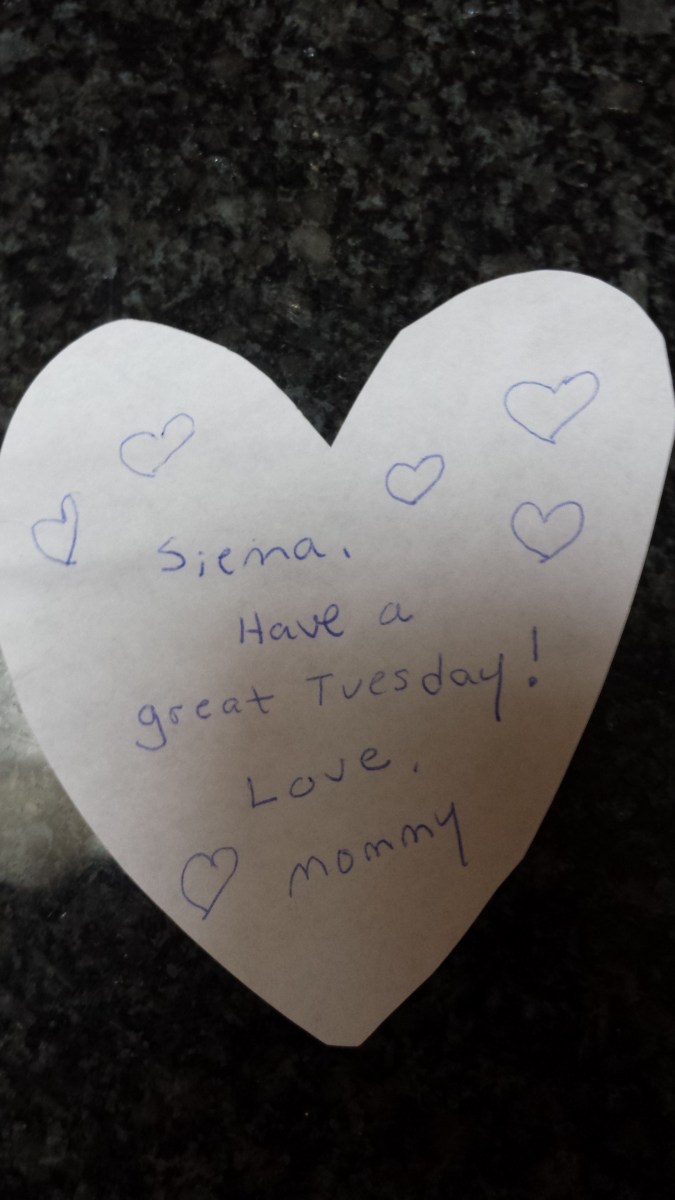 Siena,
Have a
great Tuesday!
Love,
mommy